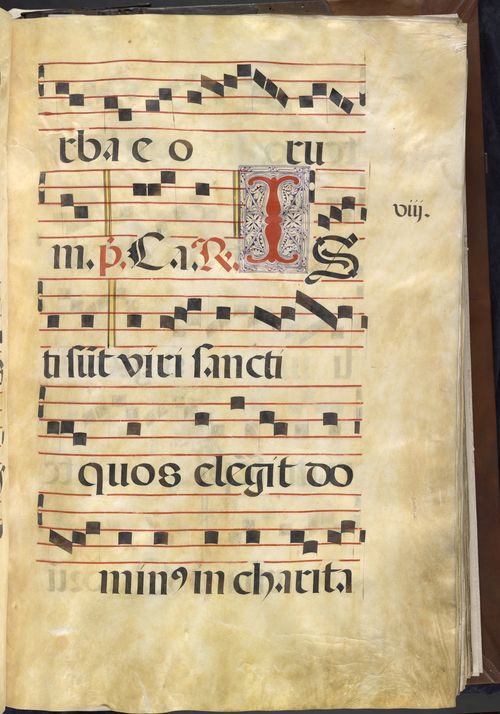 rba e o ru
m. p. C. a. R. IS viij.
ti sūt viri sancti
quos elegit do
minꝰ in charita